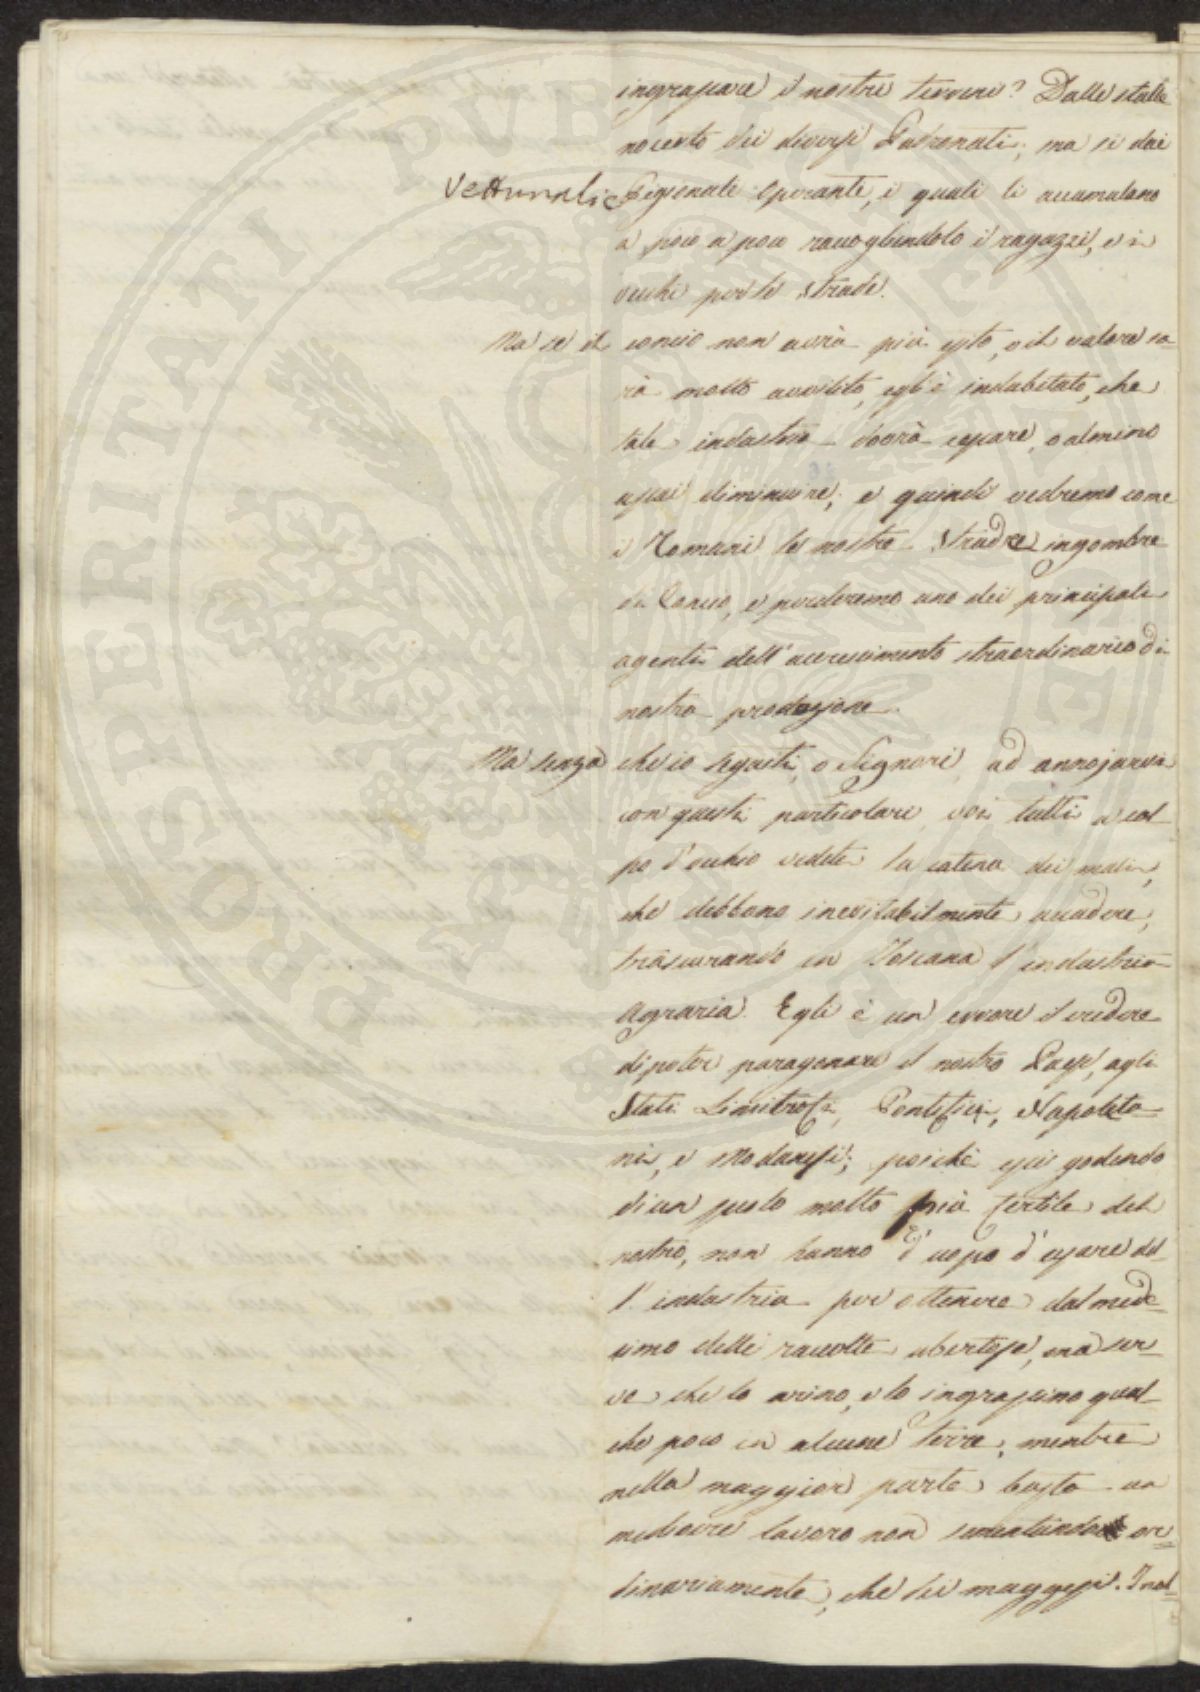 ingrassare i nostri terreni? Dalle stalle
no certo dei diversi Padronati; ma sì dai
Vetturali e Pigionali operanti, i quali li accumulano
a poco a poco raccogliendolo i ragazzi, e i
vecchi per le strade.
Ma se il concio non avrà più esito, o il valore sa-
rà molto avvilito, egli è indubitato, che
tale industria dovrà cessare, o almeno
assai diminuire; e quindi vedremo come
i Romani le nostre Strade ingombre
di Concio, e perderemo uno dei principali
agenti dell'accrescimento straordinario di
nostra produzione.
Ma senza che io seguiti, o Signori, ad annojarvi
con questi particolari, voi tutti a col-
po d'occhio vedete la catena dei mali,
che debbono inevitabilmente accadere,
trascurando in Toscana l'industria
Agraria. Egli è un errore il credere
di poter paragonare il nostro Paese, agli
Stati Limitrofi, Pontificj, Napoleta-
ni, e Modanesi; poichè essi godendo
di un suolo molto più fertile del
nostro, non hanno d'uopo d'usare del-
l'industria per ottenere dal mede-
simo delle raccolte ubertose, ma ser-
ve che lo arino, e lo ingrassino qual-
che poco in alcune terre, mentre
nella maggior parte basta un
mediocre lavoro non sementando or-
dinariamente, che sui maggesi. Inol-
PROSPERITATI PUBLICAE AUGENDAE